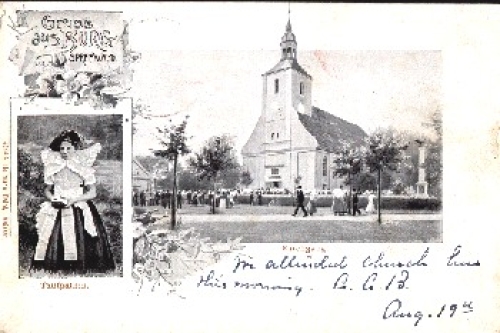 Gruss
aus BURG
SPREEWALD
Taufpatin.
We attended church here
this morning. B. G. B.
Aug. 19th